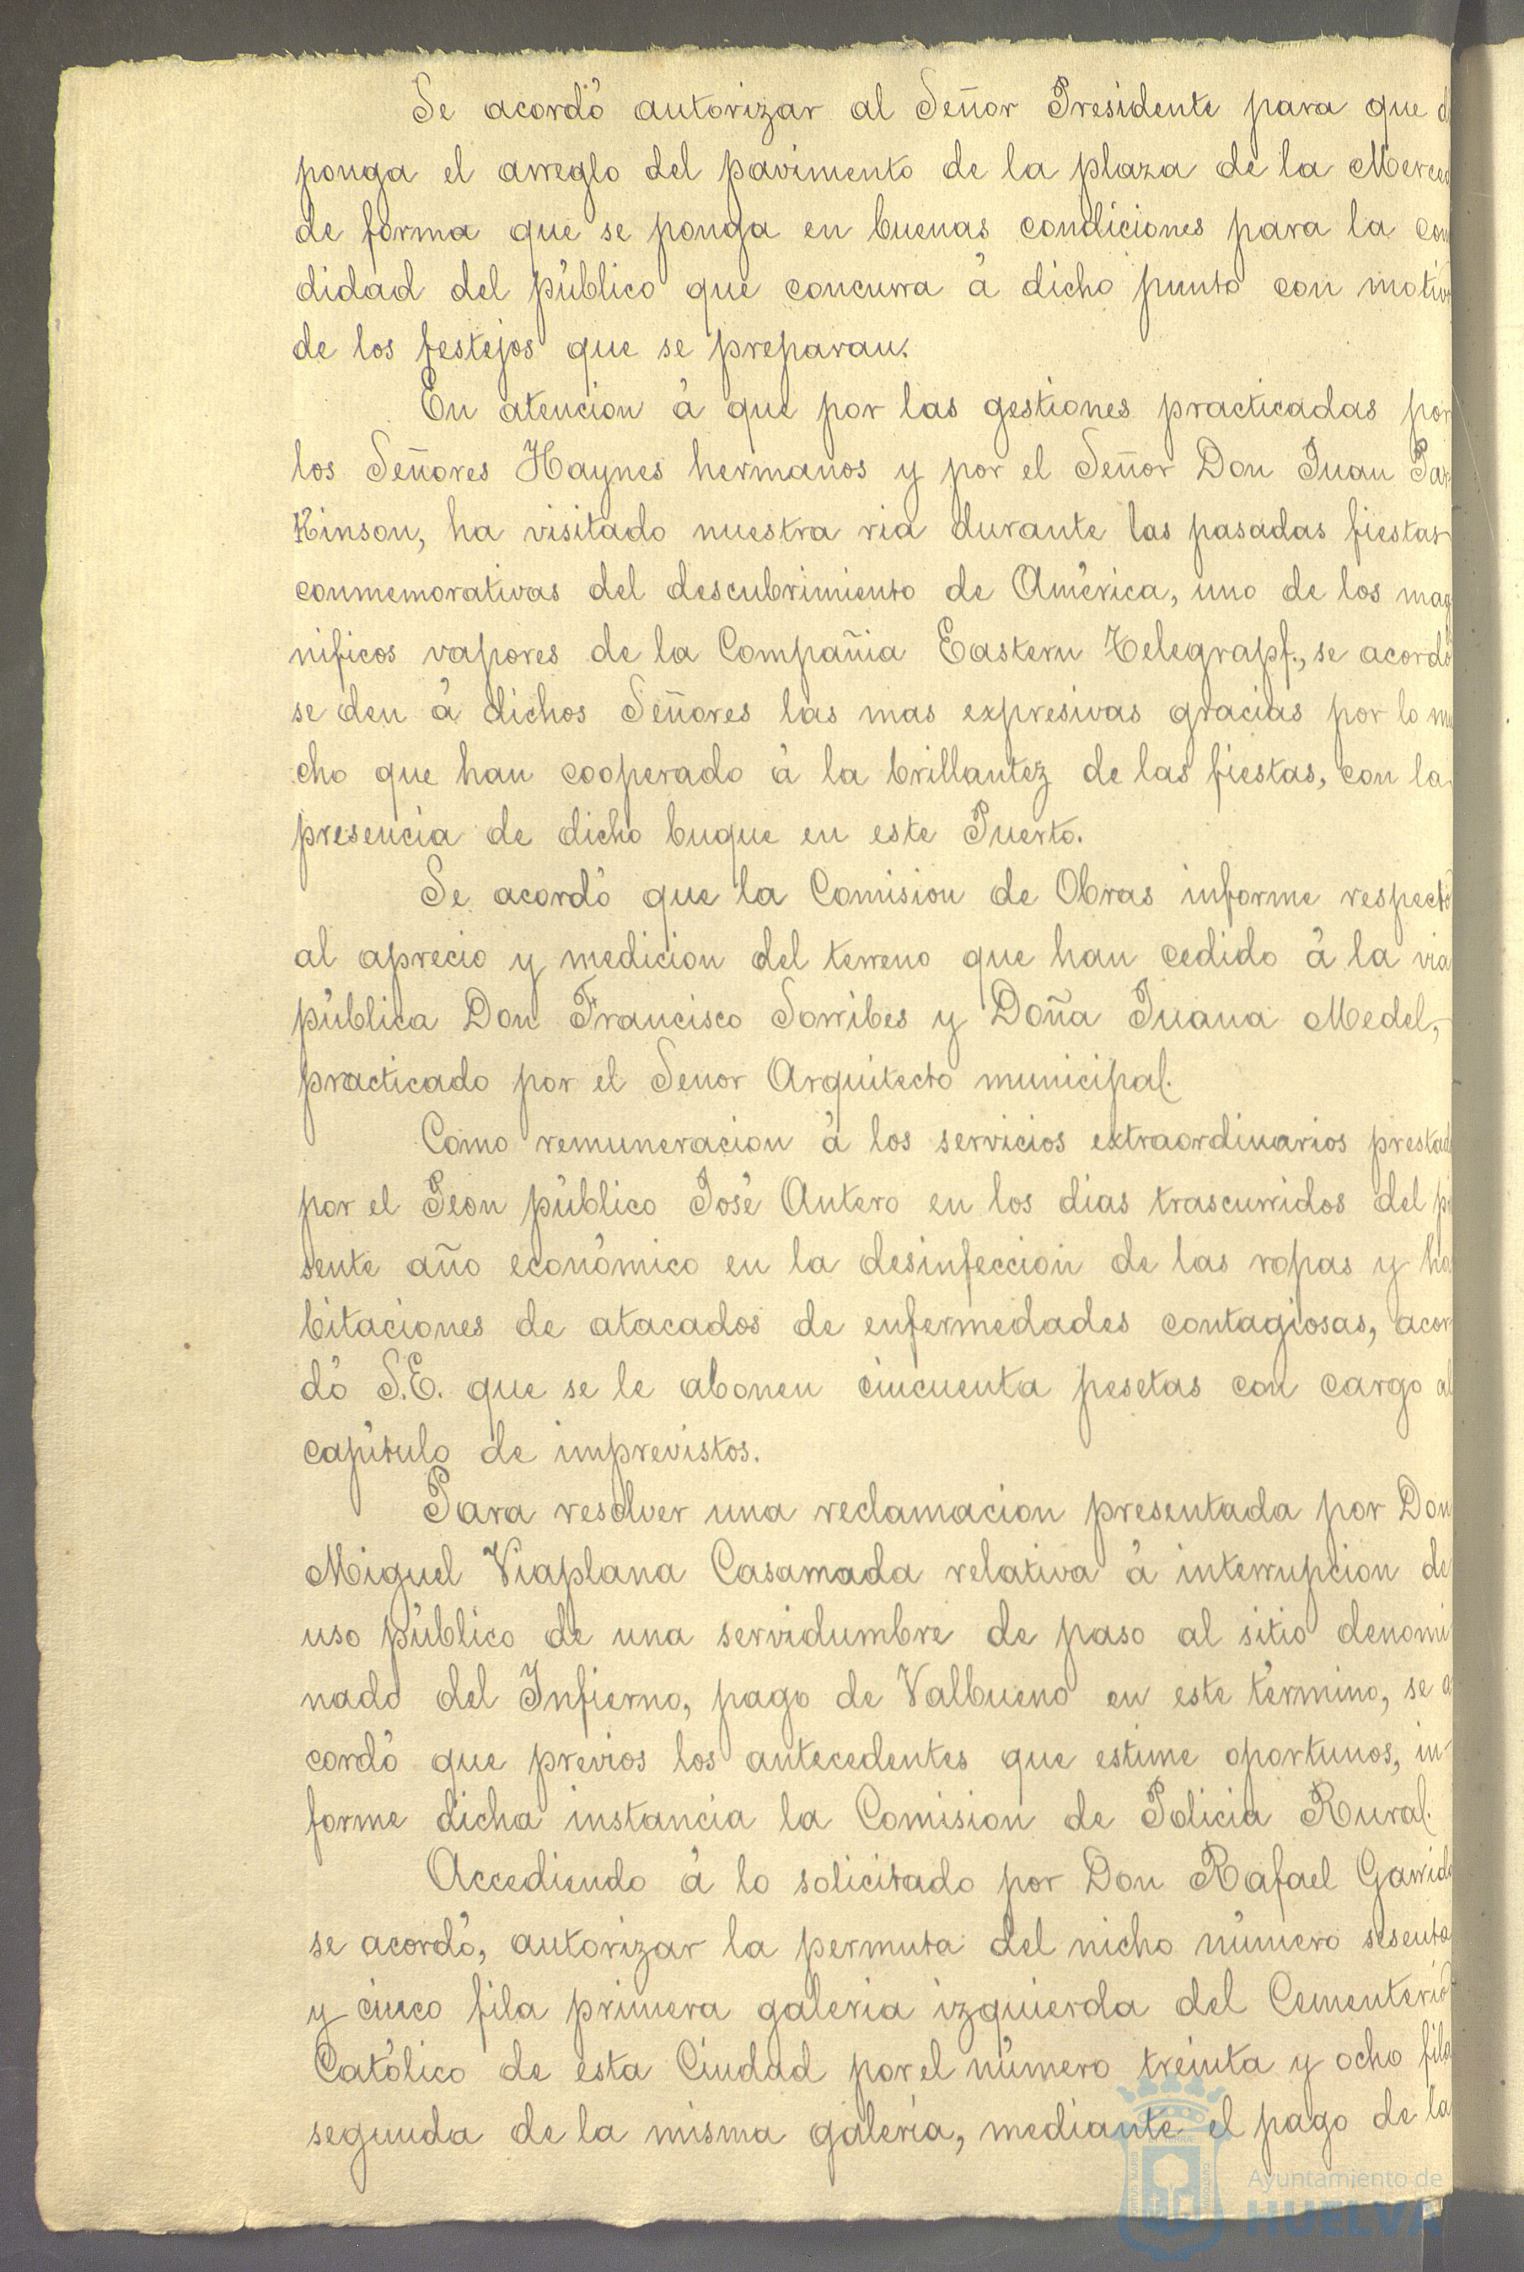 Se acordó autorizar al Señor Presidente para que d
ponga el arreglo del pavimento de la plaza de la Merced
de forma que se ponga en buenas condiciones para la com
didad del público que concurra á dicho punto con motivo
de los festejos que se preparan.
En atencion á que por las gestiones practicadas por
los Señores Haynes hermanos y por el Señor Don Juan Par
Kinson, ha visitado nuestra ria durante las pasadas fiestas
conmemorativas del descubrimiento de América, uno de los mag
nificos vapores de la Compañia Eastern Telegrapf., se acordó
se den á dichos Señores las mas expresivas gracias por lo mu
cho que han cooperado á la brillantez de las fiestas, con la
presencia de dicho buque en este Puerto.
Se acordó que la Comision de Obras informe respecto
al aprecio y medicion del terreno que han cedido á la via
pública Don Francisco Sorribes y Doña Juana Medel,
practicado por el Señor Arquitecto municipal.
Como remuneracion á los servicios extraordinarios prestad
por el Peon público José Antero en los dias trascurridos del pr
sente año económico en la desinfeccion de las ropas y ha
bitaciones de atacados de enfermedades contagiosas, acor
dó S.E. que se le abonen cincuenta pesetas con cargo al
capítulo de imprevistos.
Para resolver una reclamacion presentada por Don
Miguel Viaplana Casamada relativa á interrupcion de
uso público de una servidumbre de paso al sitio denomi
nado del Infierno, pago de Valbueno en este término, se a
cordó que previos los antecedentes que estime oportunos, in-
forme dicha instancia la Comision de Policia Rural.
Accediendo á lo solicitado por Don Rafael Garrido
se acordó, autorizar la permuta del nicho número sesenta
y cinco fila primera galeria izquierda del Cementerio
Católico de esta Ciudad por el número treinta y ocho fila
segunda de la misma galeria, mediante el pago de la
Ayuntamiento de
HUELVA